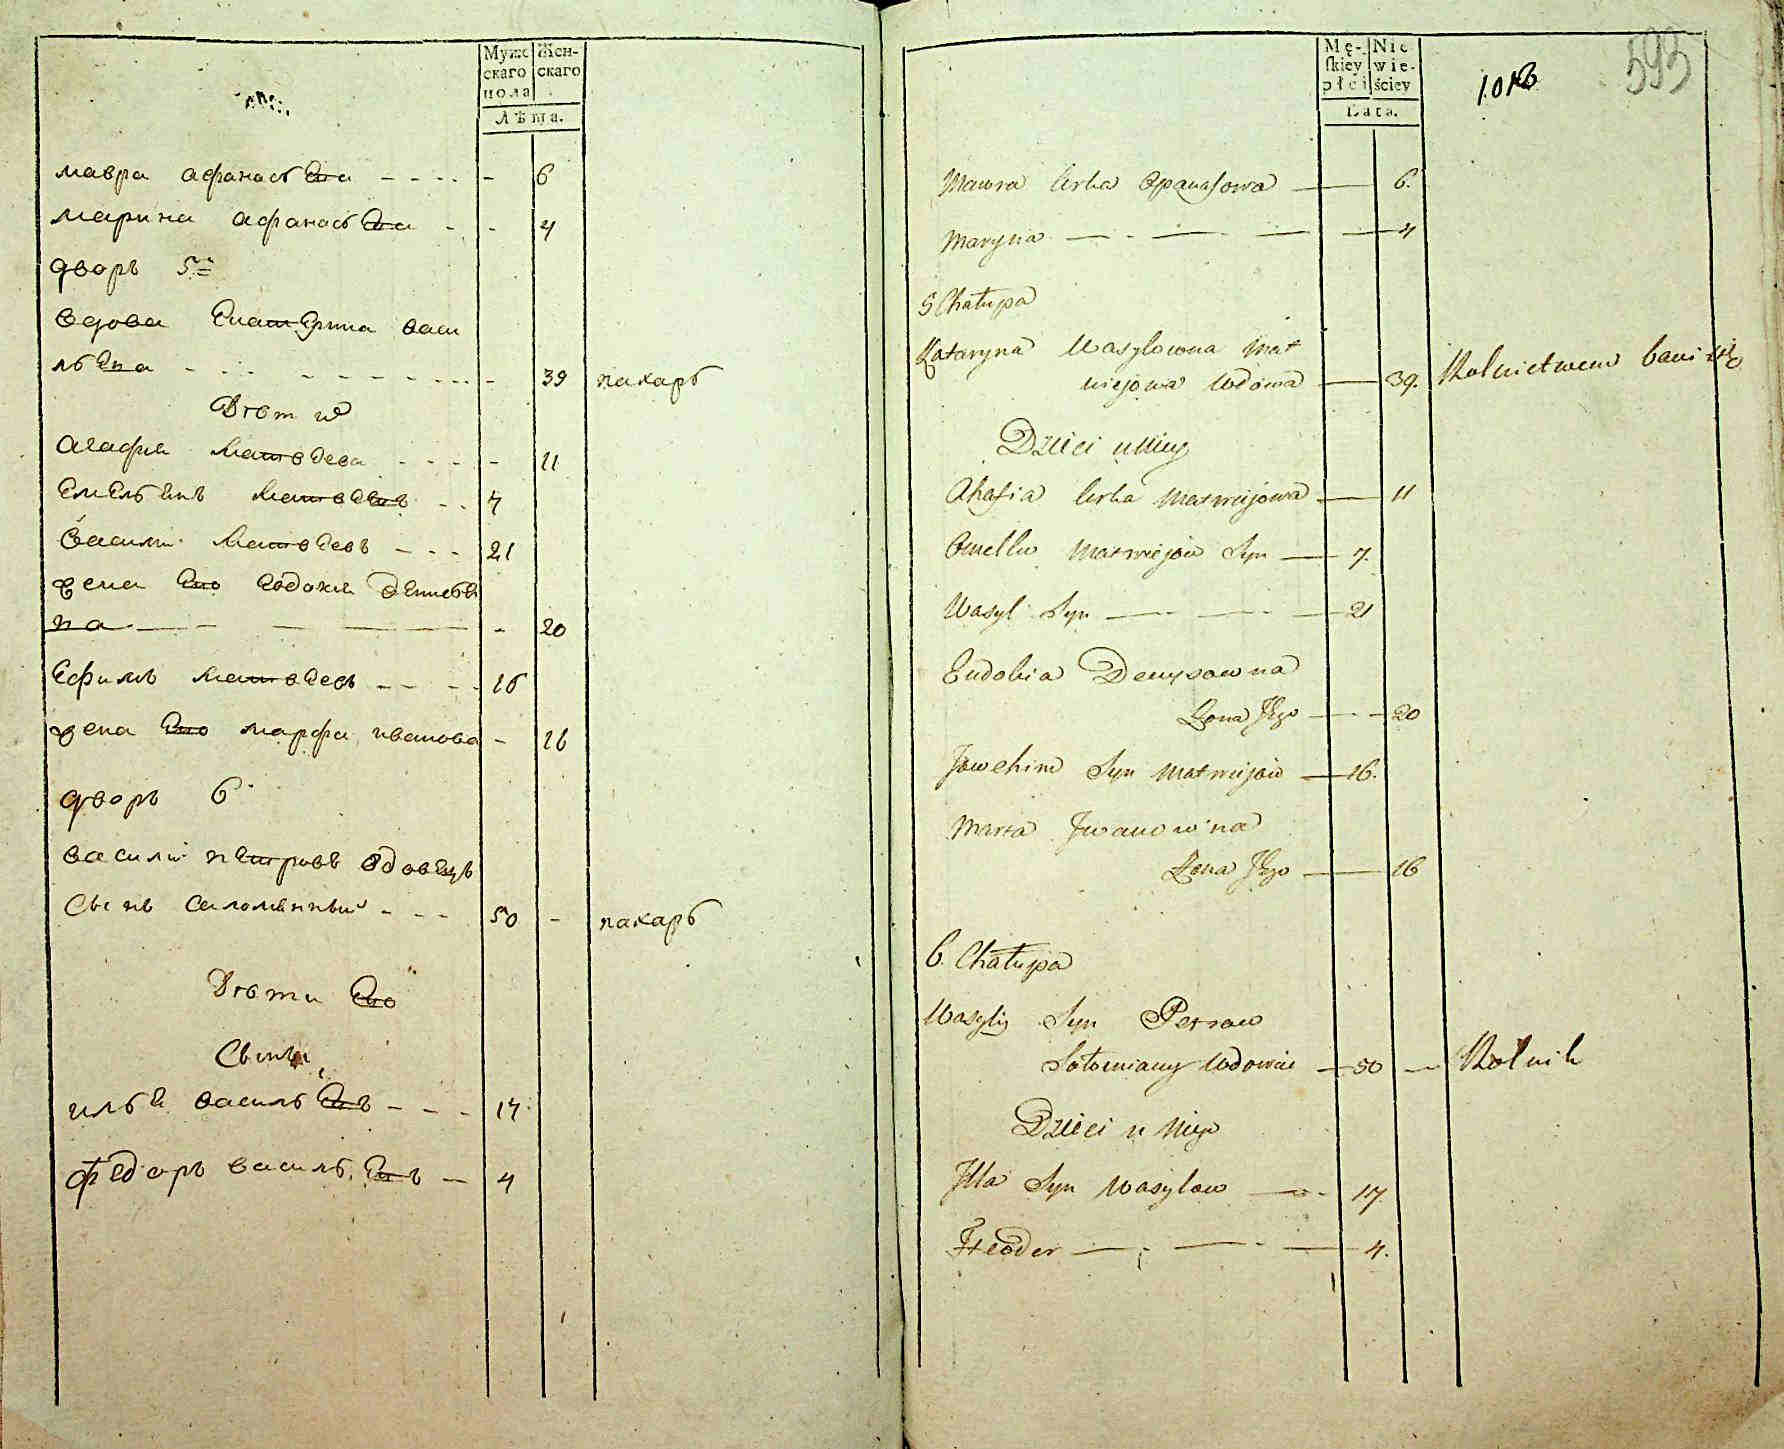 Муже
скаго
пола
Жен-
скаго
Лѣта.
мавра афанасьева - - - - - 6
марина афанасьева - - 4
дворъ 5й
вдова Екатерина васи
льева - - - - - - - 39 пахарь
Дѣти
агафия матвеева - - - - 11
Емельянъ матвеевъ - - 7
Василий матвеевъ - - - 21
жена Ево Евдокия денисье
ва — — — — - 20
Ефимъ матвеевъ - - - - 16
жена Ево марфа иванова - 16
дворъ 6
василий петровъ вдовецъ
сынъ саломянный - - - 50 - пахарь
Дѣти Ево
Сыны
илья васильевъ - - - 17
федоръ васильевъ — 4
Mę-
skiey
płci
Nie
wie-
ściey
Lata.
593
Mawra Corka Opanasowa — 6.
Maryna — - — — — 4
5 Chałupa
Kataryna Wasylowna Mat
wiejowa Wdowa — 39. Rolnictwem bawi się
Dzieci u niey
Ahafia Corka Matwiejowa — 11
Omelko Matwiejow Syn — 7.
Wasyl Syn — — 21
Eudokia Denysowna
Żona Jego — - - 20
Jowchim Syn Matwiejow — 16.
Marta Iwanowna
Żona Jego — 16
6. Chałupa
Wasyliy Syn Petrow
Sołomiany Wdowiec — 50 — Rolnik
Dzieci u niego
Illa Syn Wasylow — - 17.
Fteoder — - — — 4.